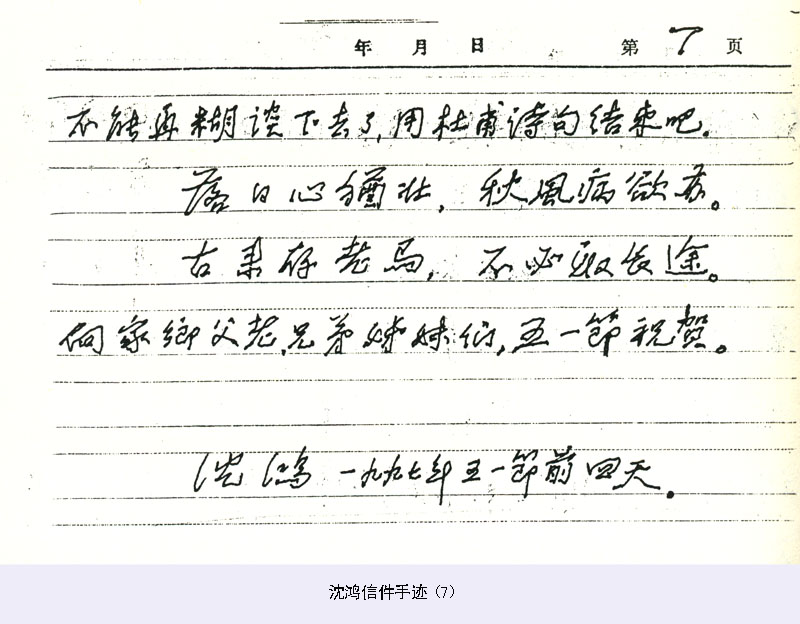 年 月 日 第 7 页
不能再糊谈下去了,用杜甫诗句结束吧.
落日心犹壮,秋風病欲苏。
古来存老马,不必取长途。
向家鄉父老、兄弟姊妹们,五一節祝贺。
沈鸿 一九九七年五一節前四天.
沈鸿信件手迹(7)